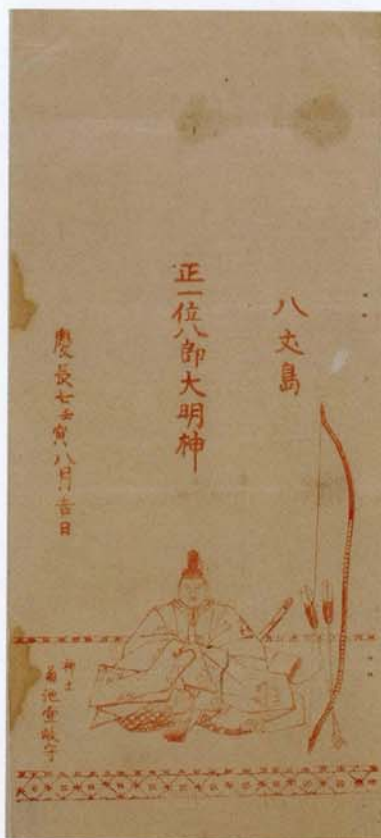 八丈島
正一位八郎大明神
慶長七壬寅八月吉日
神主
菊池壹岐守